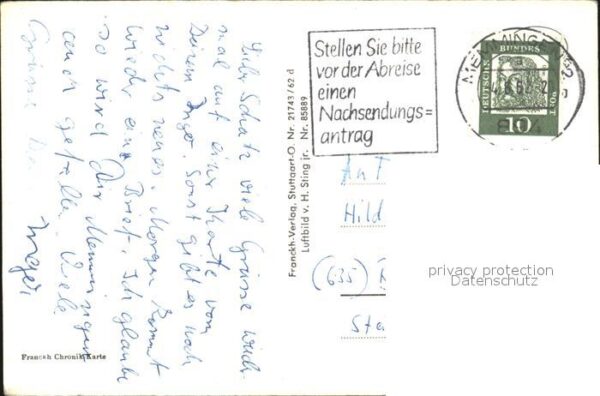 Lieber Schatz viele Grüsse noch-
mal auf einer Karte von
Deinem Inge. Sonst gibt es noch
nichts neues. Morgen kommt
wieder ein Brief. Ich glaube
so wird Dir Memmingen
auch gefallen. Viele
Grüsse
Inge
Franckh Chronik Karte
Franckh-Verlag, Stuttgart-O. Nr. 21743/62 d
Luftbild v. H. Sting jr. Nr. 85889
Stellen Sie bitte
vor der Abreise
einen
Nachsendungs=
antrag
MEMMINGEN
DEUTSCHE BUNDESPOST
10
An
Hild
(635)
Sta
privacy protection
Datenschutz